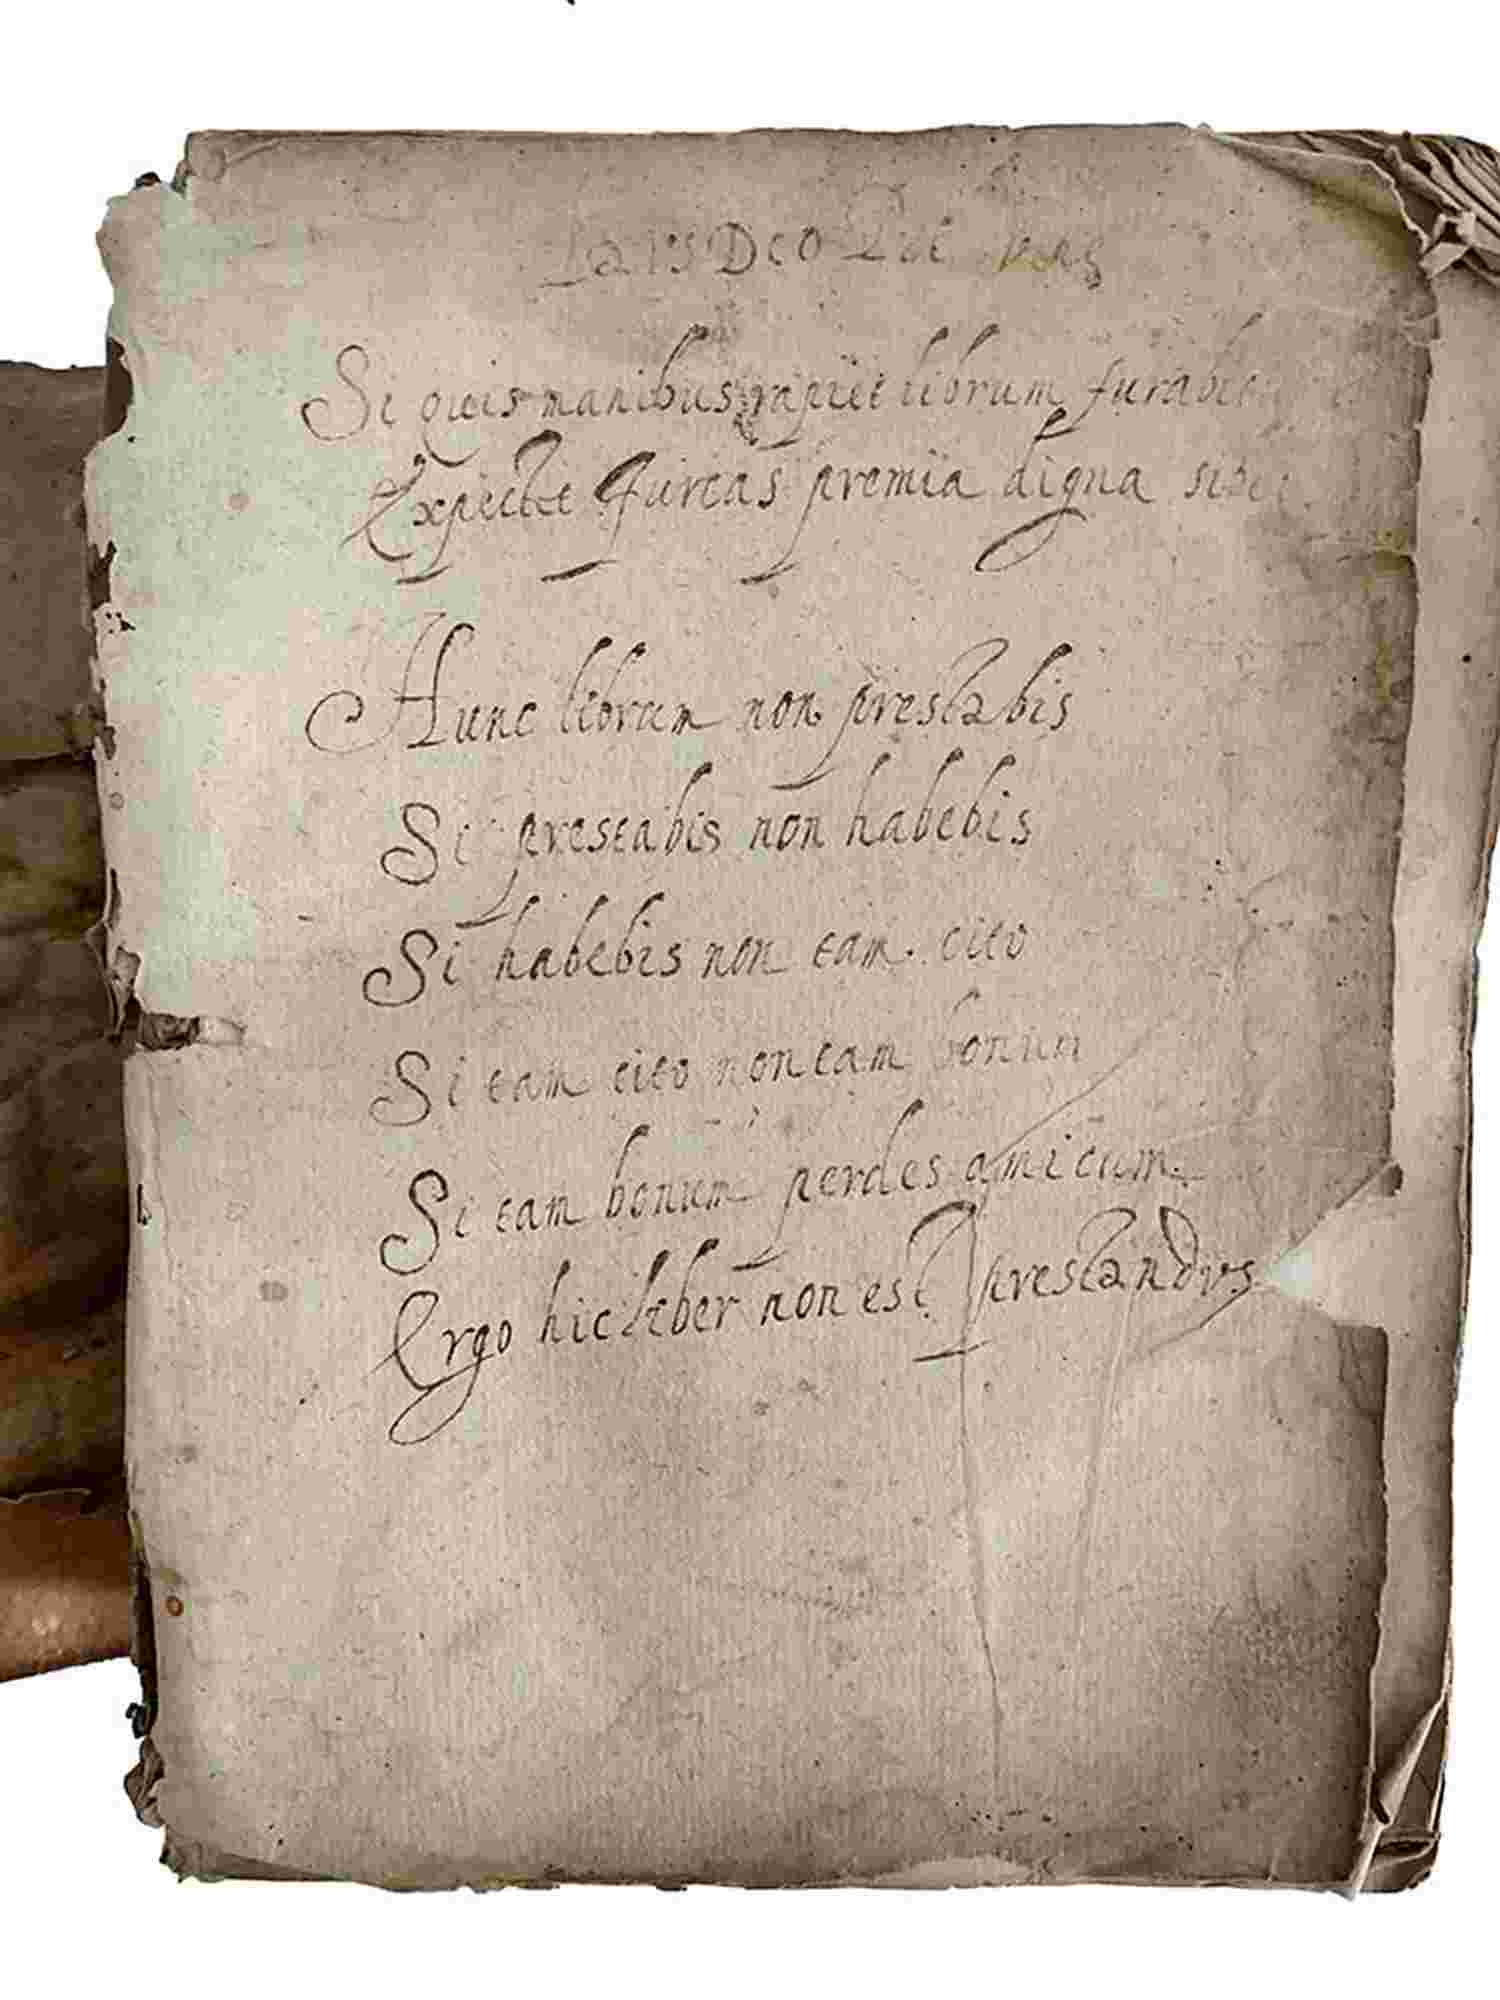 Laus Deo
Si quis manibus rapiet librum
Expectet furcas premia digna
Hunc librum non prestabis
Si prestabis non habebis
Si habebis non tam cito
Si tam cito non tam bonum
Si tam bonum perdes amicum
Ergo hic liber non est prestandus